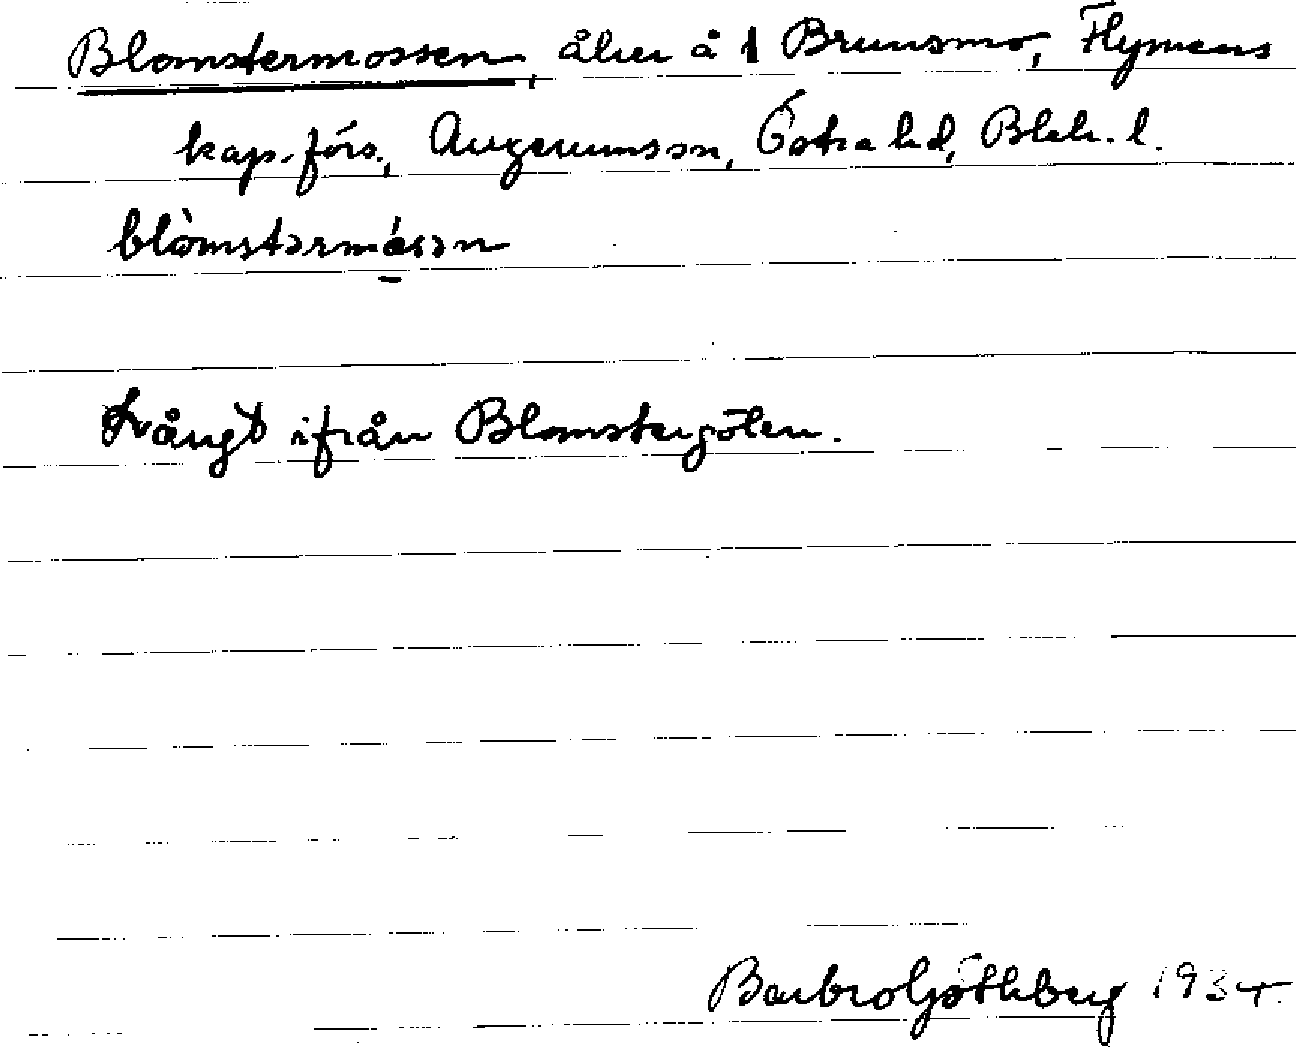 Blomstermossen, åker å 1 Brunsmo, Flymens
kap.förs., Augerumssn, Östra hd, Blek. l.
blòmstərmåsən
Långt ifrån Blomstergölen.
Barbro Göthberg 1934.